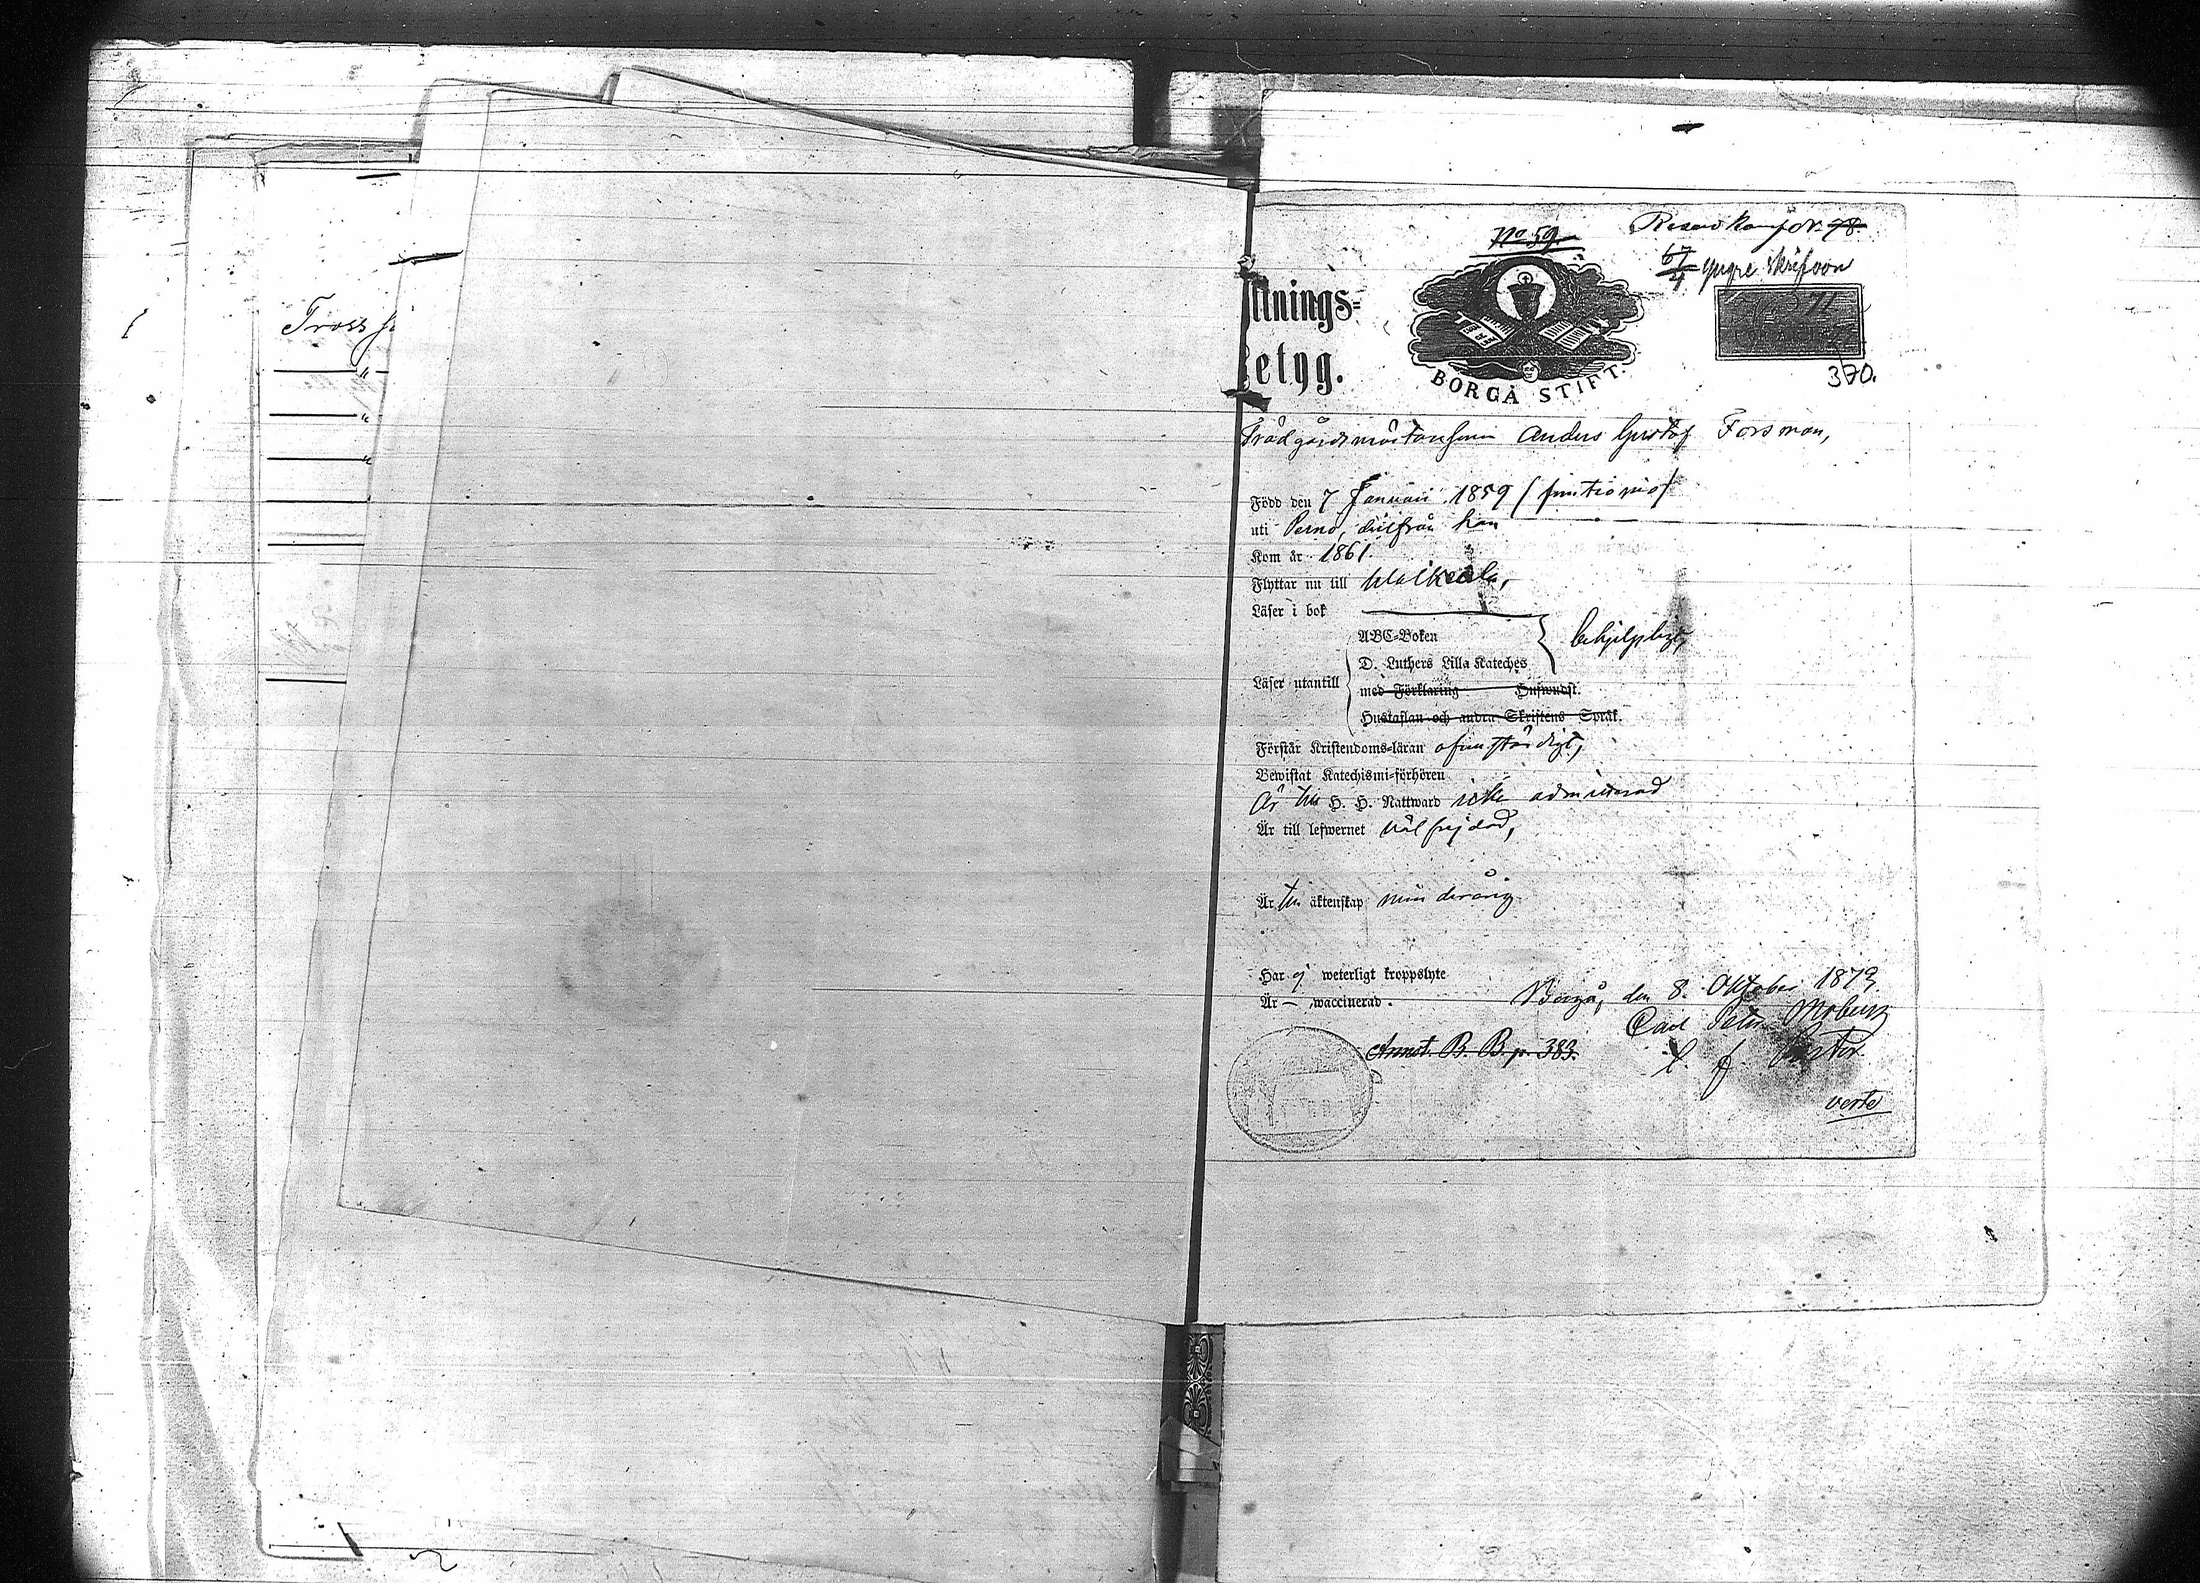 Tross
No 59.
Reserv Komp. Nr 78.
67/4 yngre skrifvare
ttnings-
Betyg.
BORGÅ STIFT.
370.
Trädgårdsmästaresonen Anders Gustaf Forsman,
Född den 7 Januari 1859 (femtionio)
uti Perno, därifrån han
Kom år 1861.
Flyttar nu till Walkeala,
Läser i bok
ABC-Boken
behjelpligt,
D. Luthers Lilla Kateches
Läser utantill
med Förklaring Huswudst.
Hustaflan och andra Skriftens Språk.
Förstår Kristendoms-läran ofullständigt,
Bewistat Katechismi-förhören
Är till H. H. Nattward icke admitterad
Är till lefwernet väl frejdad,
Är till äktenskap minderårig
Har ej weterligt kroppslyte
Är — waccinerad.
Borgå, den 8. Oktober 1873.
Carl Peter Moberg
Annot. B. B. p. 383.
t. f. Pastor.
verte